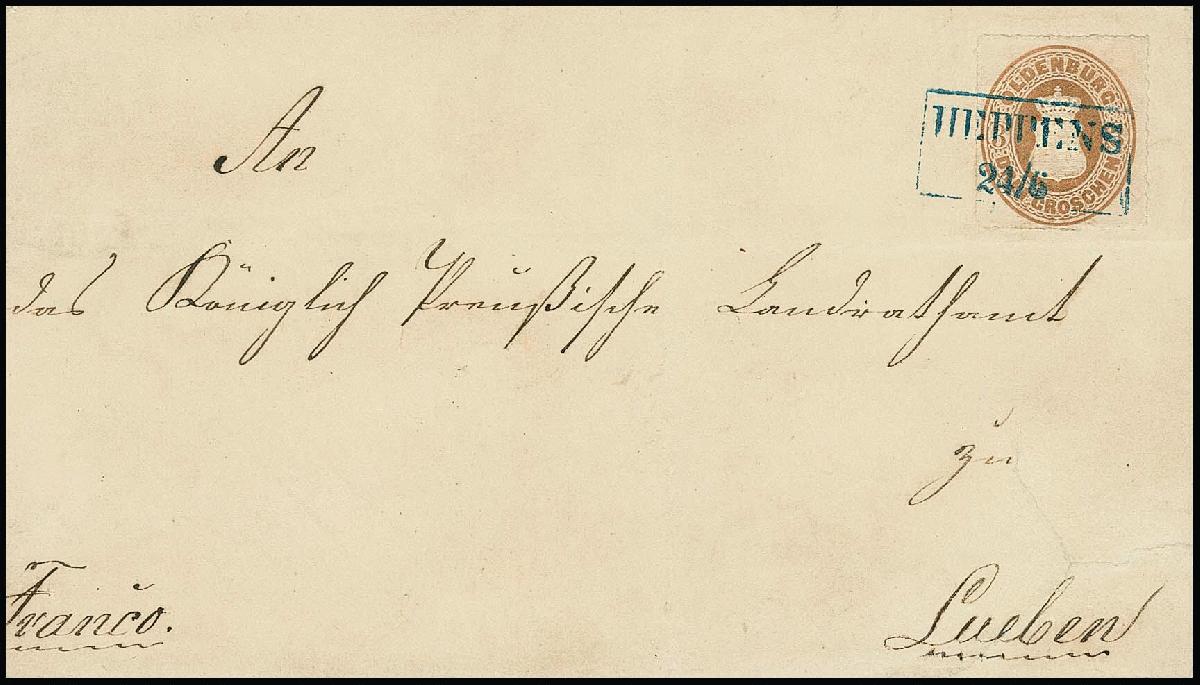 OLDENBURG
GROSCHEN
HEPPENS
24/6
An
das Königlich Preußische Landrathamt
zu
Franco.
Lueben